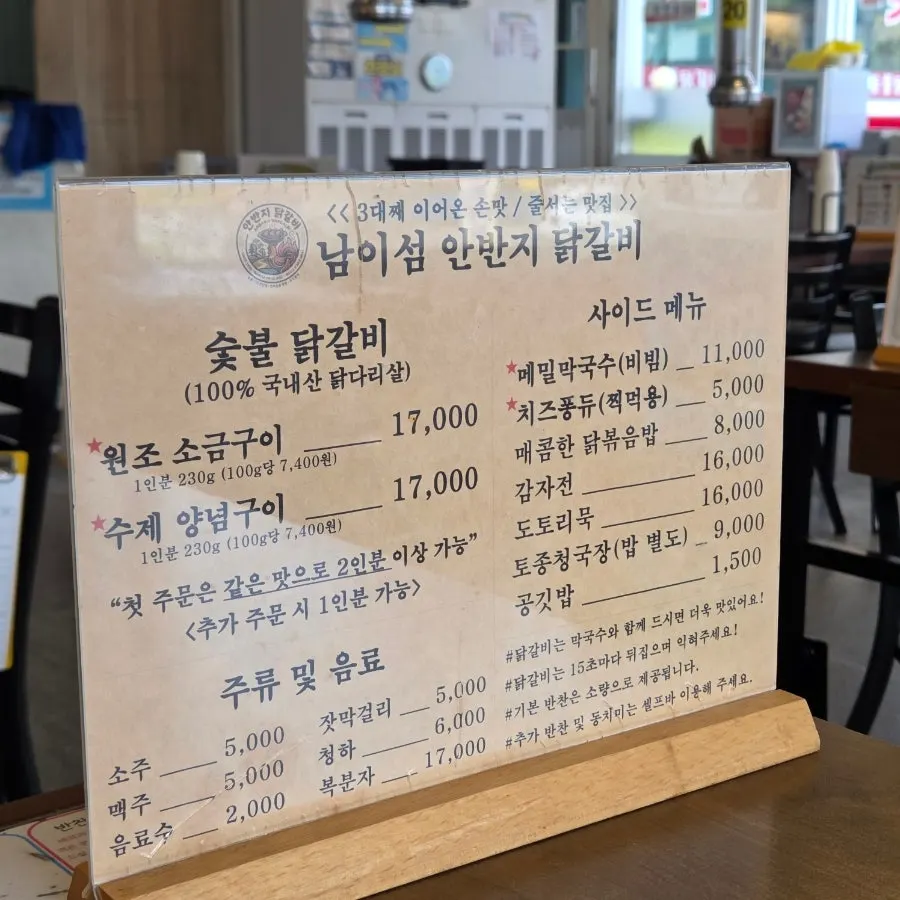 << 3대째 이어온 손맛 / 줄서는 맛집 >>
안반지 닭갈비
남이섬 안반지 닭갈비
숯불 닭갈비
(100% 국내산 닭다리살)
★원조 소금구이 17,000
1인분 230g (100g당 7,400원)
★수제 양념구이 17,000
1인분 230g (100g당 7,400원)
“첫 주문은 같은 맛으로 2인분 이상 가능”
<추가 주문 시 1인분 가능>
주류 및 음료
소주 5,000
맥주 5,000
음료수 2,000
잣막걸리 5,000
청하 6,000
복분자 17,000
사이드 메뉴
★메밀막국수(비빔) 11,000
★치즈퐁듀(찍먹용) 5,000
매콤한 닭볶음밥 8,000
감자전 16,000
도토리묵 16,000
토종청국장(밥 별도) 9,000
공깃밥 1,500
#닭갈비는 막국수와 함께 드시면 더욱 맛있어요!
#닭갈비는 15초마다 뒤집으며 익혀주세요!
#기본 반찬은 소량으로 제공됩니다.
#추가 반찬 및 동치미는 셀프바 이용해 주세요.
20